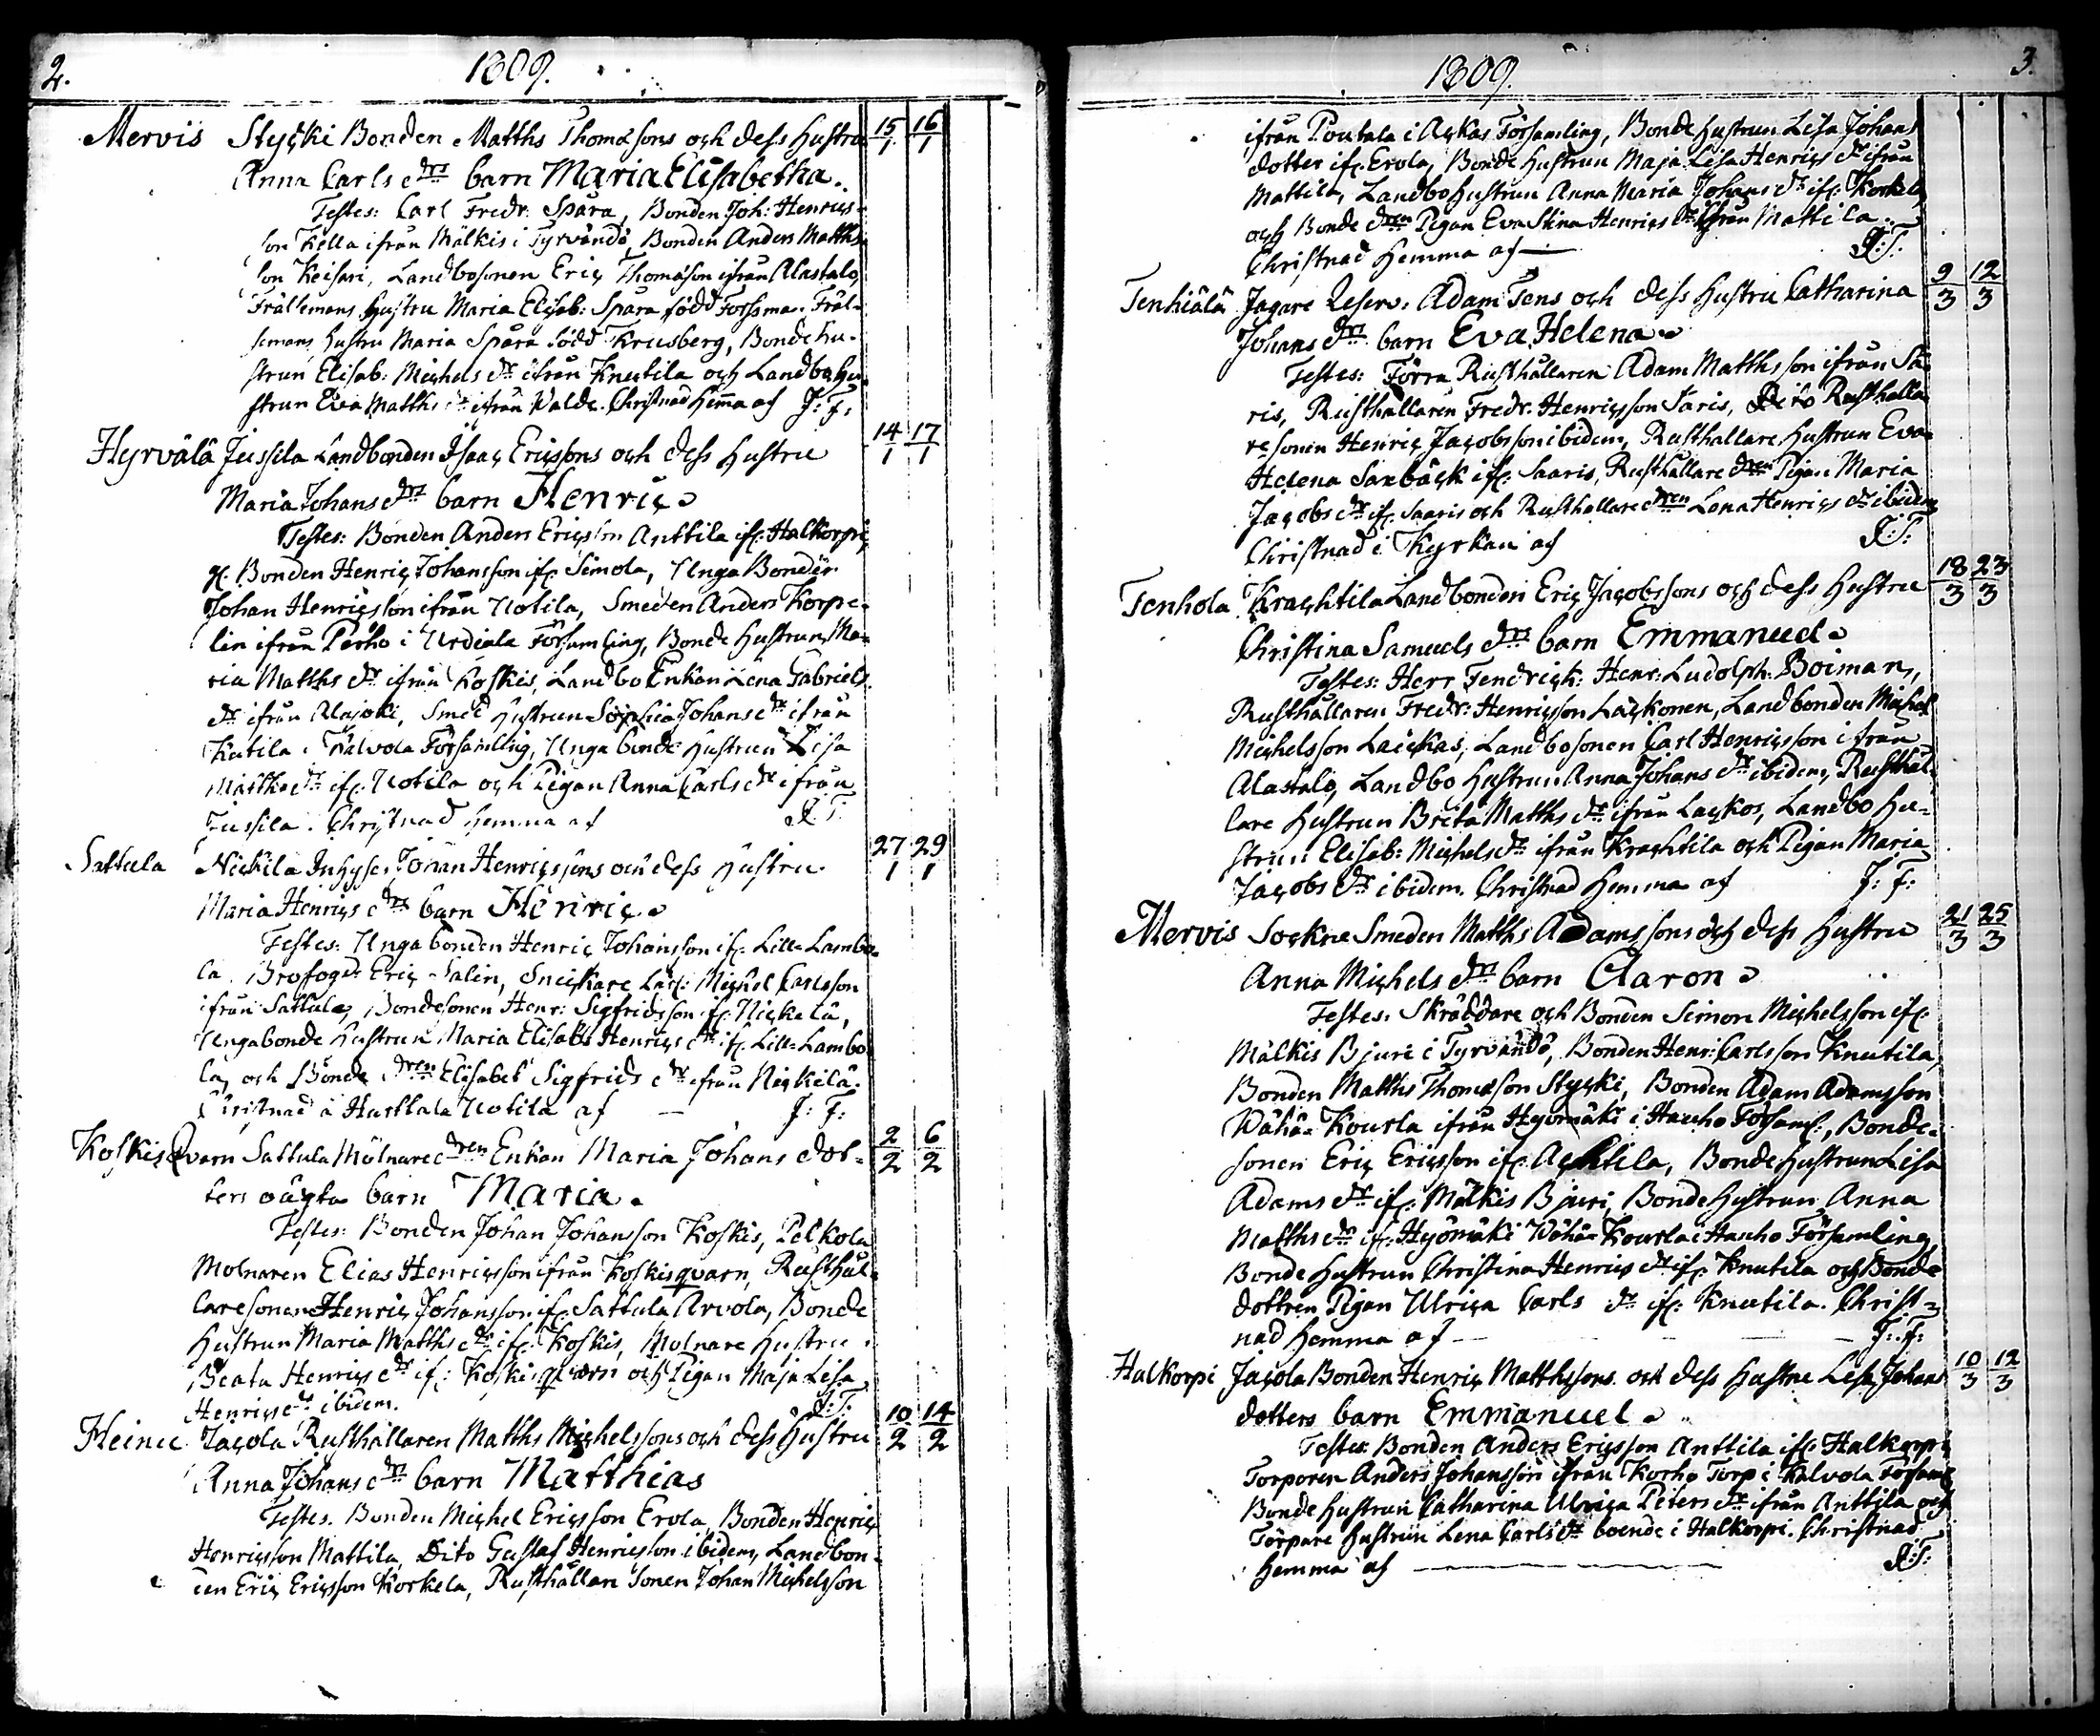 2. 1809.
Mervis Styçki Bonden Matths Thomæsons och dess hustru 15/1 16/1
Anna Carls drs barn Maria Elisabetha.
Testes: Carl Fredr. Spåra, Bonden Joh: Henrics-
son Kella ifrån Mälkis i Tyrvändö, Bonden Anders Matths
son Keisari, Landbosonen Eriç Thomæson ifrån Alastalo,
Frälsemans hustru Maria Elisab: Spara född Forssman, Fräl-
semans hustru Maria Spåra född Krusberg, Bonde hu-
strun Elisab: Michels dr ifrån Knutila och Landbo hu-
strun Eva Matths dr ifrån Walde. Christnad hemma af J: F:
Hyrvälä Jussila Landbonden Isaaç Ericssons och dess hustru 14/1 17/1
Maria Johans drs barn Henriç.
Testes: Bonden Anders Ericsson Anttila ifr: Halkorpi,
gl. Bonden Henriç Johansson ifr: Simola, Unga Bonden
Johan Henricsson ifrån Uotila, Smeden Anders Korpe-
lin ifrån Perho i Urdiala Församling, Bonde hustrun Ma-
ria Matths dr ifrån Koskis, Landbo Enkan Lena Gabriels
dr ifrån Alajoki, Smed hustrun Sophia Johans dr ifrån
Kutila i Kalvola Församling, Unga bonde hustrun Lisa
Matths dr ifr: Uotila och Pigan Anna Carls dr ifrån
Jussila. Christnad hemma af J. T.
Sattula Nickilä Inhyses Johan Henricssons och dess hustru 27/1 29/1
Maria Henrics drs barn Henriç.
Testes: Unga bonden Henriç Johansson ifr: Lill-Lambo-
la, Brofogd: Eriç Salin, Snickare Lärl: Michel Carlsson
ifrån Sattula, Bondesonen Henr: Sigfridsson ifr: Nickilä,
Ungabonde hustrun Maria Elisab: Henrics dr ifr: Lill-Lambo-
la, och Bonde dren Elisabet Sigfrids dr ifrån Nickilä.
Christnad å Hurttala Uotila af — J: F:
Koskis Qvarn Sattula Mölnare dren Enkan Maria Johans dot- 2/2 6/2
ters oägta barn Maria.
Testes: Bonden Johan Johansson Koskis, Pelkola
Molnaren Elias Henricsson ifrån Koskisqvarn, Rusthål-
laresonen Henriç Johansson ifr: Sattula Arvola, Bonde
hustrun Maria Matths dr ifr: Koskis, Molnare hustru
Beata Henrics dr ifr: Koskisqvarn och Pigan Maja Lisa
Henrics dr ibidem. J: T.
Heinu Jacola Rusthållaren Matths Michelssons och dess hustru 10/2 14/2
Anna Johans drs barn Matthias
Testes. Bonden Michel Ericsson Erola, Bonden Henriç
Henricsson Mattila, Dito Gustaf Henricsson ibidem, Landbon-
den Eriç Ericsson Korkela, Rusthållare sonen Johan Michelsson
1809. 3.
ifrån Poutala i Ackas Församling, Bonde hustrun Lisa Johans
dotter ifr: Erola, Bonde hustrun Maja Lisa Henrics dr ifrån
Mattila, Landbo hustrun Anna Maria Johans dr ifr: Korkela
och Bonde dren Pigan Eva Stina Henrics dr ifrån Mattila.
Christnad hemma af — J: T:
Tenhiälä Jagare Reserv: Adam Tens och dess hustru Catharina 9/3 12/3
Johans drs barn Eva Helena.
Testes: Förra Rusthållaren Adam Matthsson ifrån Sa-
ris, Rusthållaren Fredr. Henricsson Saris, Dito Rusthålla-
re sonen Henriç Jacobsson ibidem, Rusthållare hustrun Eva
Helena Saxbäck ifr: Saaris, Rusthållare dren Pigan Maria
Jacobs dr ifr: Saaris och Rusthållare dren Lena Henrics dr ibidem,
Christnad i Kyrkan af J: T:
Tenhola Krachtila Landbonden Eriç Jacobssons och dess hustru 18/3 23/3
Christina Samuels drs barn Emmanuel.
Testes: Herr Fendrick: Henr: Ludolph: Boiman,
Rusthållaren Fredr: Henricsson Lackonen, Landbonden Michel
Michelsson Laickas, Landbosonen Carl Henricsson ifrån
Alastalo, Landbo hustrun Anna Johans dr ibidem, Rusthål-
lare hustrun Brita Matths dr ifrån Lackos, Landbo hu-
strun Elisab: Michels dr ifrån Krachtila och Pigan Maria
Jacobs dr ibidem. Christnad hemma af J: F:
Mervis Sockne Smeden Matths Adamssons och dess hustru 21/3 25/3
Anna Michels drs barn Aaron.
Testes. Skräddare och Bonden Simon Michelsson ifr:
Mälkis Bjuri i Tyrvändö, Bonden Henr: Carlsson Knutila,
Bonden Matths Thomæson Styçki, Bonden Adam Adamsson
Wähä-Kourla ifrån Hyömäki i Hauho Församl:, Bonde-
sonen Eriç Ericsson ifr: Achtila, Bonde hustrun Lisa
Adams dr ifr: Mälkis Bjuri, Bonde hustrun Anna
Matths dr ifr: Hyömäki Wähä-Kourla i Hauho Församling,
Bonde hustrun Christina Henrics dr ifr: Knutila och Bonde
dottren Pigan Ulrica Carls dr ifr: Knutila. Christ-
nad hemma af — J: F:
Halkorpi Jacola Bonden Henriç Matthssons och dess hustru Lisa Johans 10/3 12/3
dotters barn Emmanuel.
Testes: Bonden Anders Ericsson Anttila ifr: Halkorpi
Torparen Anders Johansson ifrån Korho Torp i Kalvola Församl:
Bonde hustrun Catharina Ulrica Peters dr ifrån Anttila och
Torpare hustrun Lena Carls dr boende i Halkorpi. Christnad
hemma af — J: T: